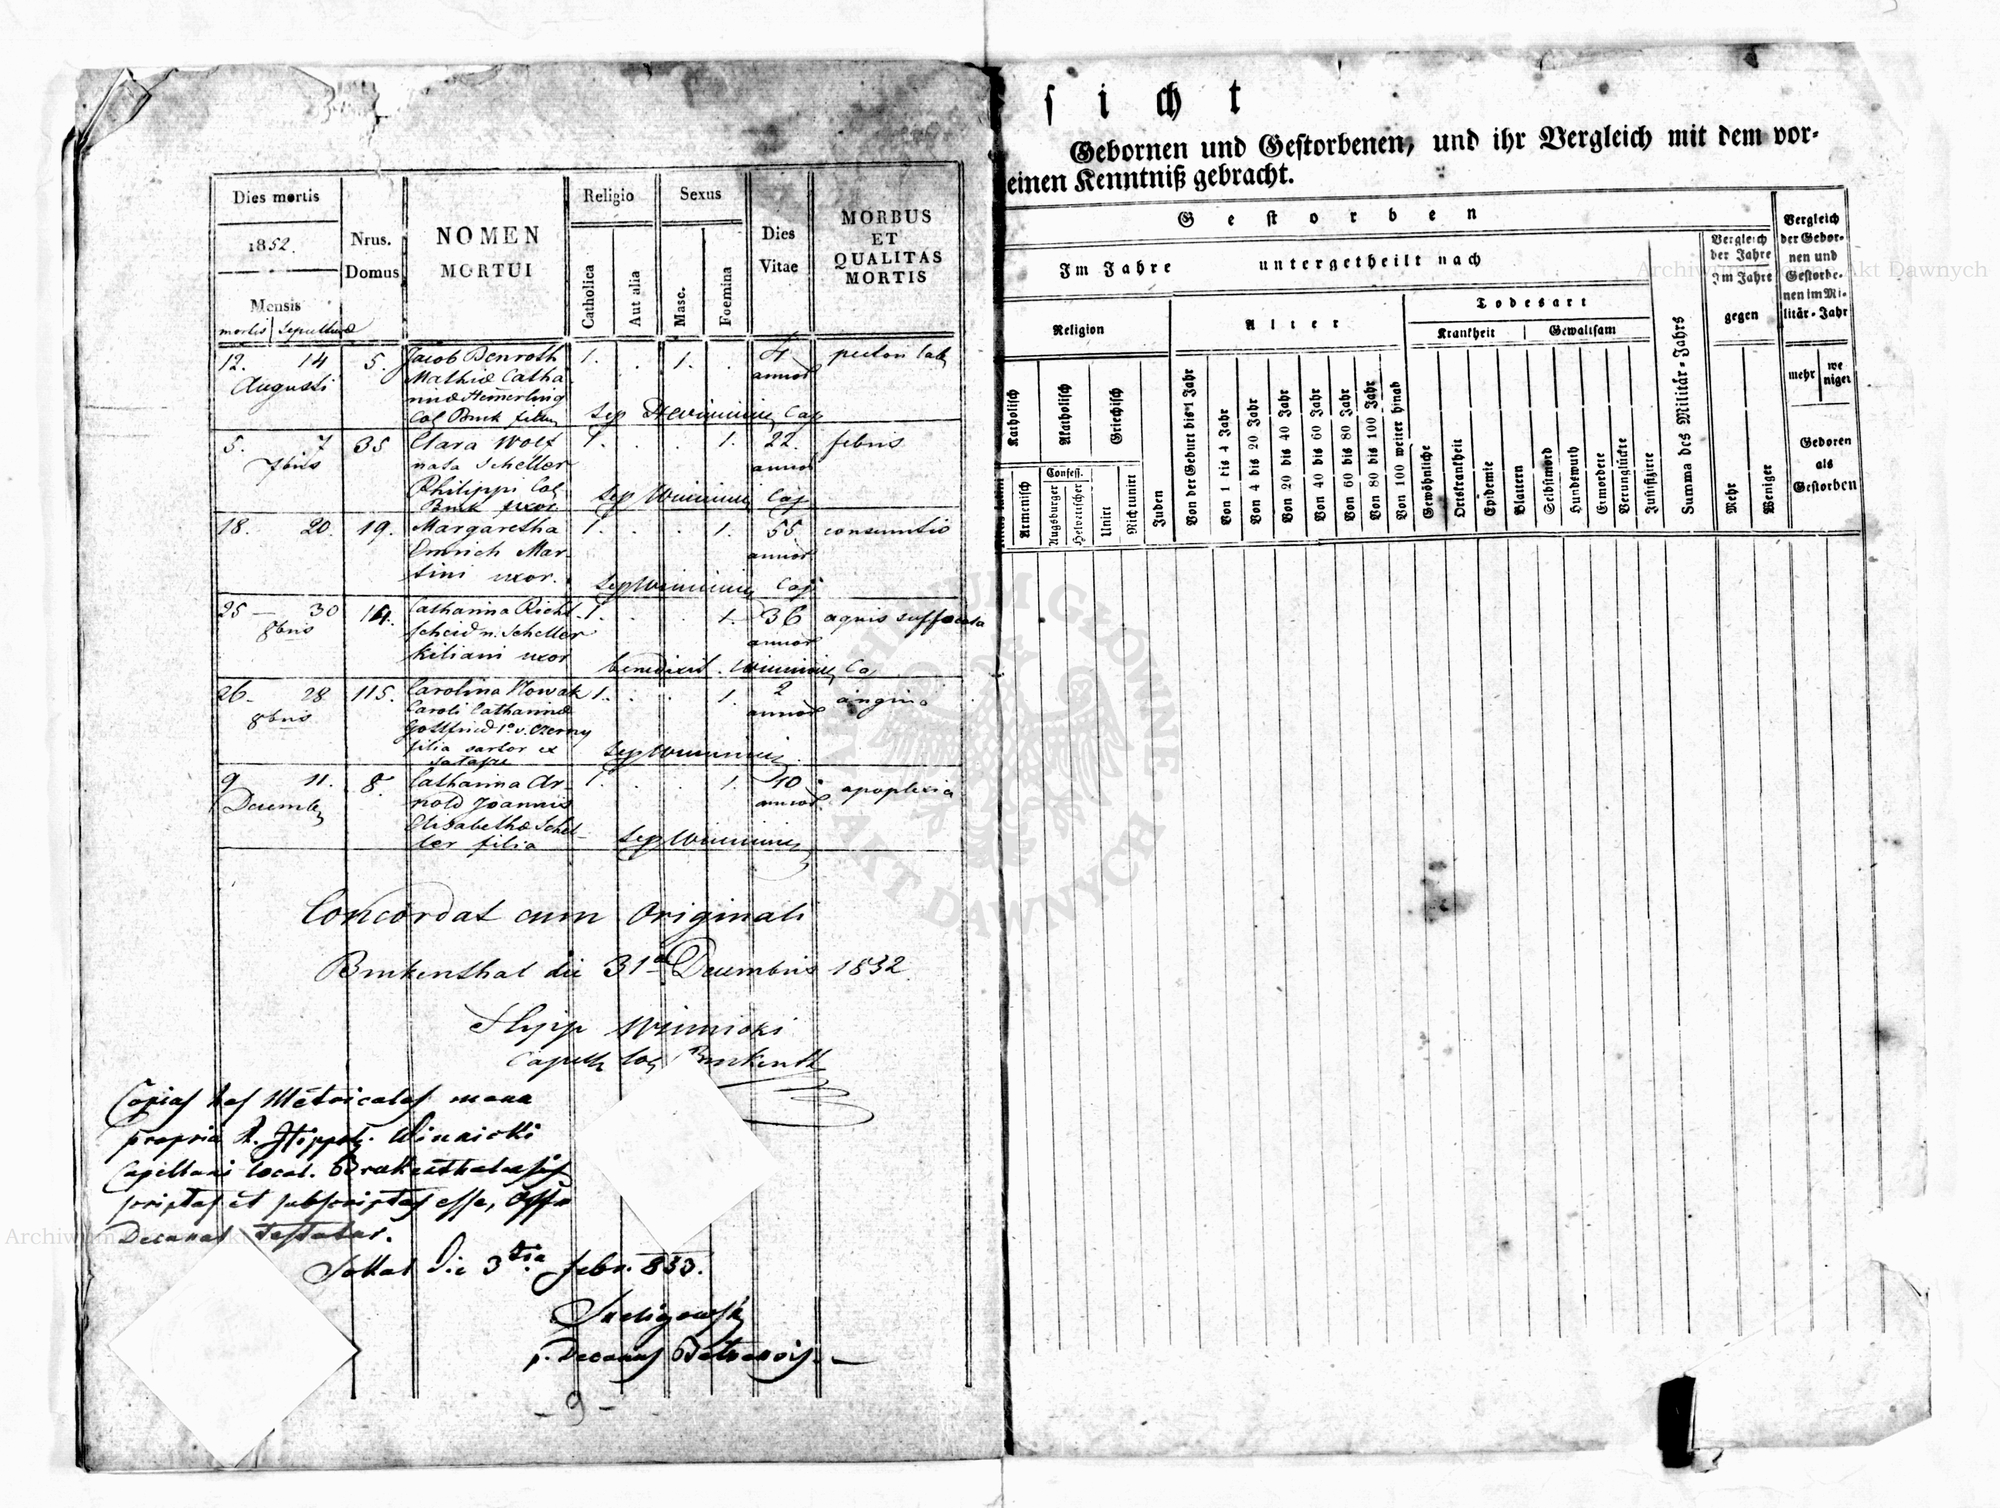 Dies mortis
1852.
Mensis
mortis | sepulturae
Nrus.
Domus
NOMEN
MORTUI
Religio
Catholica
Aut alia
Sexus
Masc.
Foemina
Dies
Vitae
MORBUS
ET
QUALITAS
MORTIS
12. 14 5. Jacob Benroth 1. . 1. . 4
Augusti Mathiae Catha annor
rinae Hemerling
Col Bruk filius
5. 7 35 Clara Wolf 1. . . 1. 22 febris
7bris nata Scheller annor
Philippi Col
Bruk uxor
18. 20. 19. Margaretha 1. . . 1. 55 consumtio
Emrich Mar- annor
tini uxor.
25 — 30 14. Catharina 1. . . 1. 36 aquis suffocata
8bris n. Scheller annor
Kiliani uxor benedixit
26 - 28 115. Carolina Nowak 1. . . 1. 2 angina
8bris Caroli Catharinae annor
Gottfried 1o v. Czerny
filia sartor ex
9 11. 8. Catharina Ar- 1. . . 1. 40 apoplexia
Decemb nold Joannis annor
Elisabethae Schel-
ler filia
Concordat cum Originali
Brukenthal die 31a Decembris 1832
Hypp Winnicki
Capell loc Brukenth
Copias has Metricales manu
propria R. Hippol. Winnicki
Capellani local. Brukenthalensis
scriptas et subscriptas esse, Offo
Decanal testatur.
Sokal die 3tia febr. 853.
p. Decanus
- 9 -
sicht
Gebornen und Gestorbenen, und ihr Vergleich mit dem vor-
einen Kenntniß gebracht.
Gestorben
Im Jahre untergetheilt nach
Religion
Katholisch
Armenisch
Akatholisch
Confess.
Augsburger
Helvetischer
Griechisch
Unirt
Nichtunirt
Juden
Alter
Von der Geburt bis 1 Jahr
Von 1 bis 4 Jahr
Von 4 bis 20 Jahr
Von 20 bis 40 Jahr
Von 40 bis 60 Jahr
Von 60 bis 80 Jahr
Von 80 bis 100 Jahr
Von 100 weiter hinab
Todesart
Krankheit
Gewaltsam
Gewöhnliche
Ortskrankheit
Epidemie
Blattern
Selbstmord
Hundswuth
Ermordete
Verunglückte
Justifizirte
Summa des Militär-Jahrs
Vergleich
der Jahre
Im Jahre
gegen
Mehr
Weniger
Vergleich
der Gebor-
nen und
Gestorbe-
nen im Mi-
litär-Jahr
mehr
we
niger
Geboren
als
Gestorben
ARCHIWUM GŁÓWNE AKT DAWNYCH